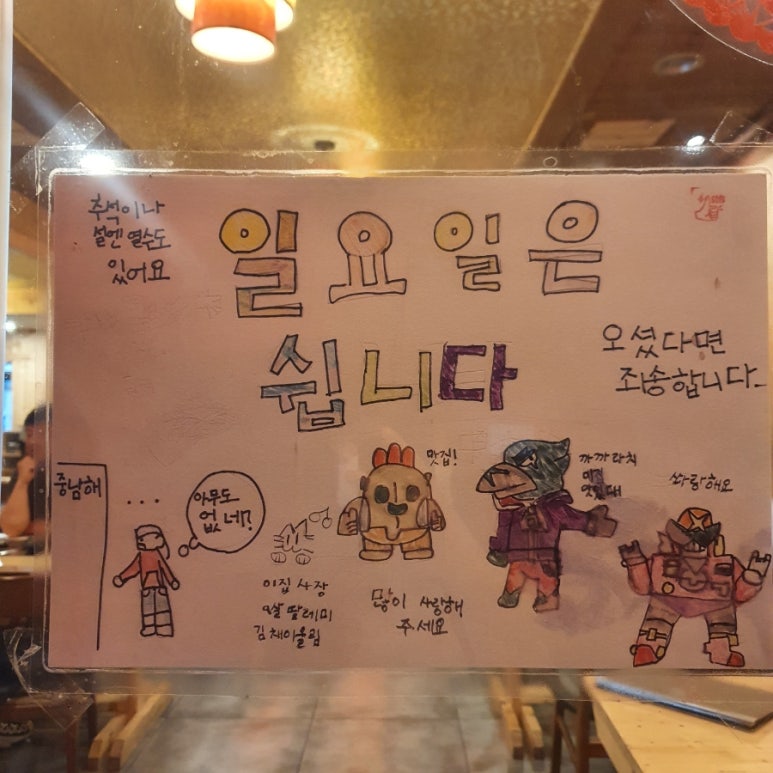 추석이나
설엔 열수도
있어요
일요일은
쉽니다
오셨다면
죄송합니다
중남해
...
아무도
없네?
이집 사장
딸래미
맛집!
많이 사랑해
주세요
까까라치
맛있대
쏴랑해요